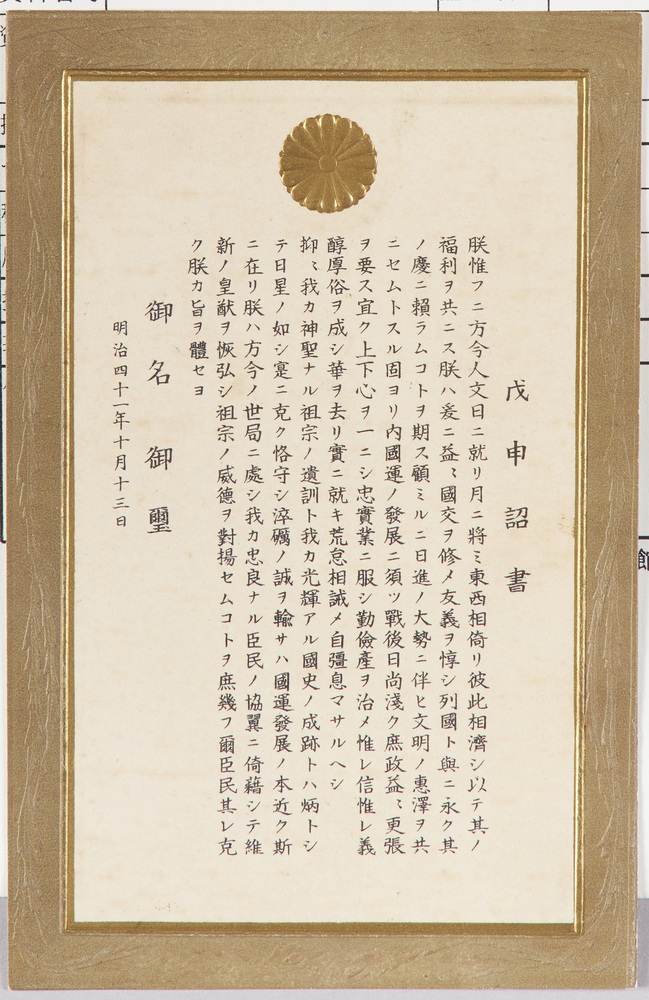 戊申詔書
朕惟フニ方今人文日ニ就リ月ニ將ミ東西相倚リ彼此相濟シ以テ其ノ
福利ヲ共ニス朕ハ爰ニ益〻國交ヲ修メ友義ヲ惇シ列國ト與ニ永ク其
ノ慶ニ賴ラムコトヲ期ス顧ミルニ日進ノ大勢ニ伴ヒ文明ノ惠澤ヲ共
ニセムトスル固ヨリ內國運ノ發展ニ須ツ戰後日尚淺ク庶政益〻更張
ヲ要ス宜ク上下心ヲ一ニシ忠實業ニ服シ勤儉產ヲ治メ惟レ信惟レ義
醇厚俗ヲ成シ華ヲ去リ實ニ就キ荒怠相誡メ自彊息マサルヘシ
抑〻我カ神聖ナル祖宗ノ遺訓ト我カ光輝アル國史ノ成跡トハ炳トシ
テ日星ノ如シ寔ニ克ク恪守シ淬礪ノ誠ヲ輸サハ國運發展ノ本近ク斯
ニ在リ朕ハ方今ノ世局ニ處シ我カ忠良ナル臣民ノ協翼ニ倚藉シテ維
新ノ皇猷ヲ恢弘シ祖宗ノ威德ヲ對揚セムコトヲ庶幾フ爾臣民其レ克
ク朕カ旨ヲ體セヨ
御名御璽
明治四十一年十月十三日
館